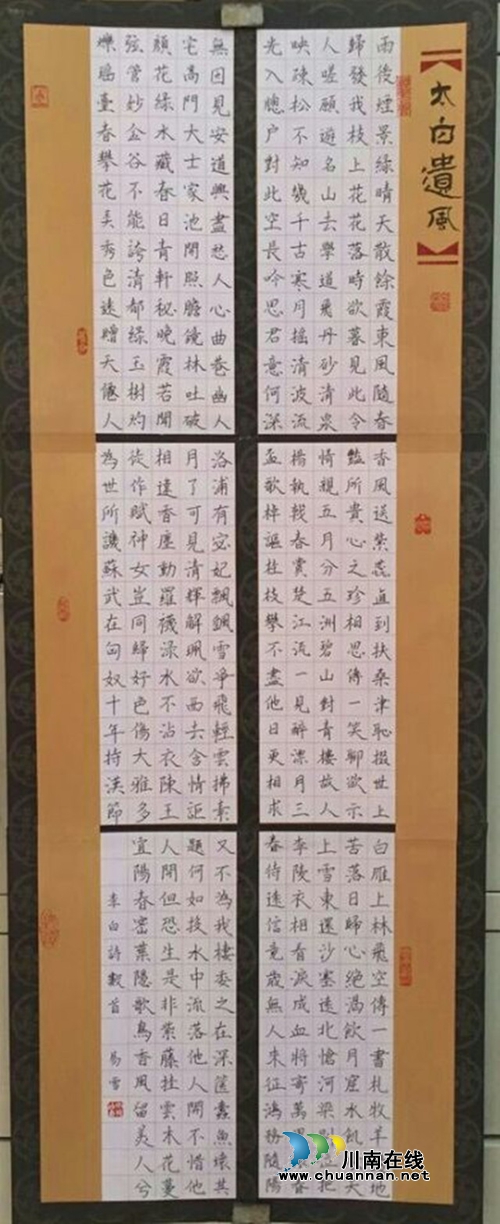 【太白遺風】
雨後煙景綠晴天散餘霞東風隨春
歸發我枝上花花落時欲暮見此令
人嗟願遊名山去學道飛丹砂清泉
映疎松不知幾千古寒月搖清波流
光入牕户對此空長吟思君意何深
無因見安道興盡愁人心曲巷幽人
宅高門大士家池開照膽鏡林吐破
顔花綠水藏春日青軒秘晚霞若聞
弦管妙金谷不能誇清都綠玉樹灼
爍瑤臺春攀花弄秀色遠贈天僊人
香風送紫蕊直到扶桑津恥掇世上
豔所貴心之珍相思傳一笑聊欲示
情親五月分五洲碧山對青樓故人
楊執戟春賞楚江流一見醉漂月三
盃歌棹謳桂枝攀不盡他日更相求
洛浦有宓妃飄飖雪爭飛輕雲拂素
月了可見清輝解珮欲西去含情詎
相違香塵動羅襪淥水不沾衣陳王
徒作賦神女豈同歸好色傷大雅多
為世所譏蘇武在匈奴十年持漢節
白雁上林飛空傳一書札牧羊地
苦落日歸心絕渴飲月窟水飢天
上雪東還沙塞遠北愴河梁別泣把
李陵衣相看淚成血將寄萬春
春待遠信竟歲無人來征鴻務隨陽
又不為我棲委之在深篋蠹魚壞其
題何如投水中流落他人開不惜他
人開但恐生是非紫藤挂雲木花蔓
宜陽春密葉隱歌鳥香風留美人兮
李白詩數首 易雪
川南在线
www.chuannan.net